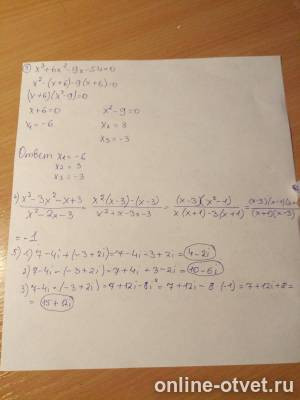 3) x³+6x²-9x-54=0
x²·(x+6)-9(x+6)=0
(x+6)(x²-9)=0
x+6=0 x²-9=0
x₁=-6 x₂=3
x₃=-3
Ответ x₁=-6
x₂=3
x₃=-3
4) x²-3x²-x+3/x²-2x-3 = x²(x-3)-(x-3)/x²+x-3x-3 = (x-3)(x²-1)/x(x+1)-3(x+1) =
= -1
5) 1) 7-4i+(-3+2i)=7-4i-3+2i=4-2i
3) 7-4i·(-3+2i)=7+12i-8i²=7+12i-8·(-1)=7+12i+8=
=15+12i
online-otvet.ru